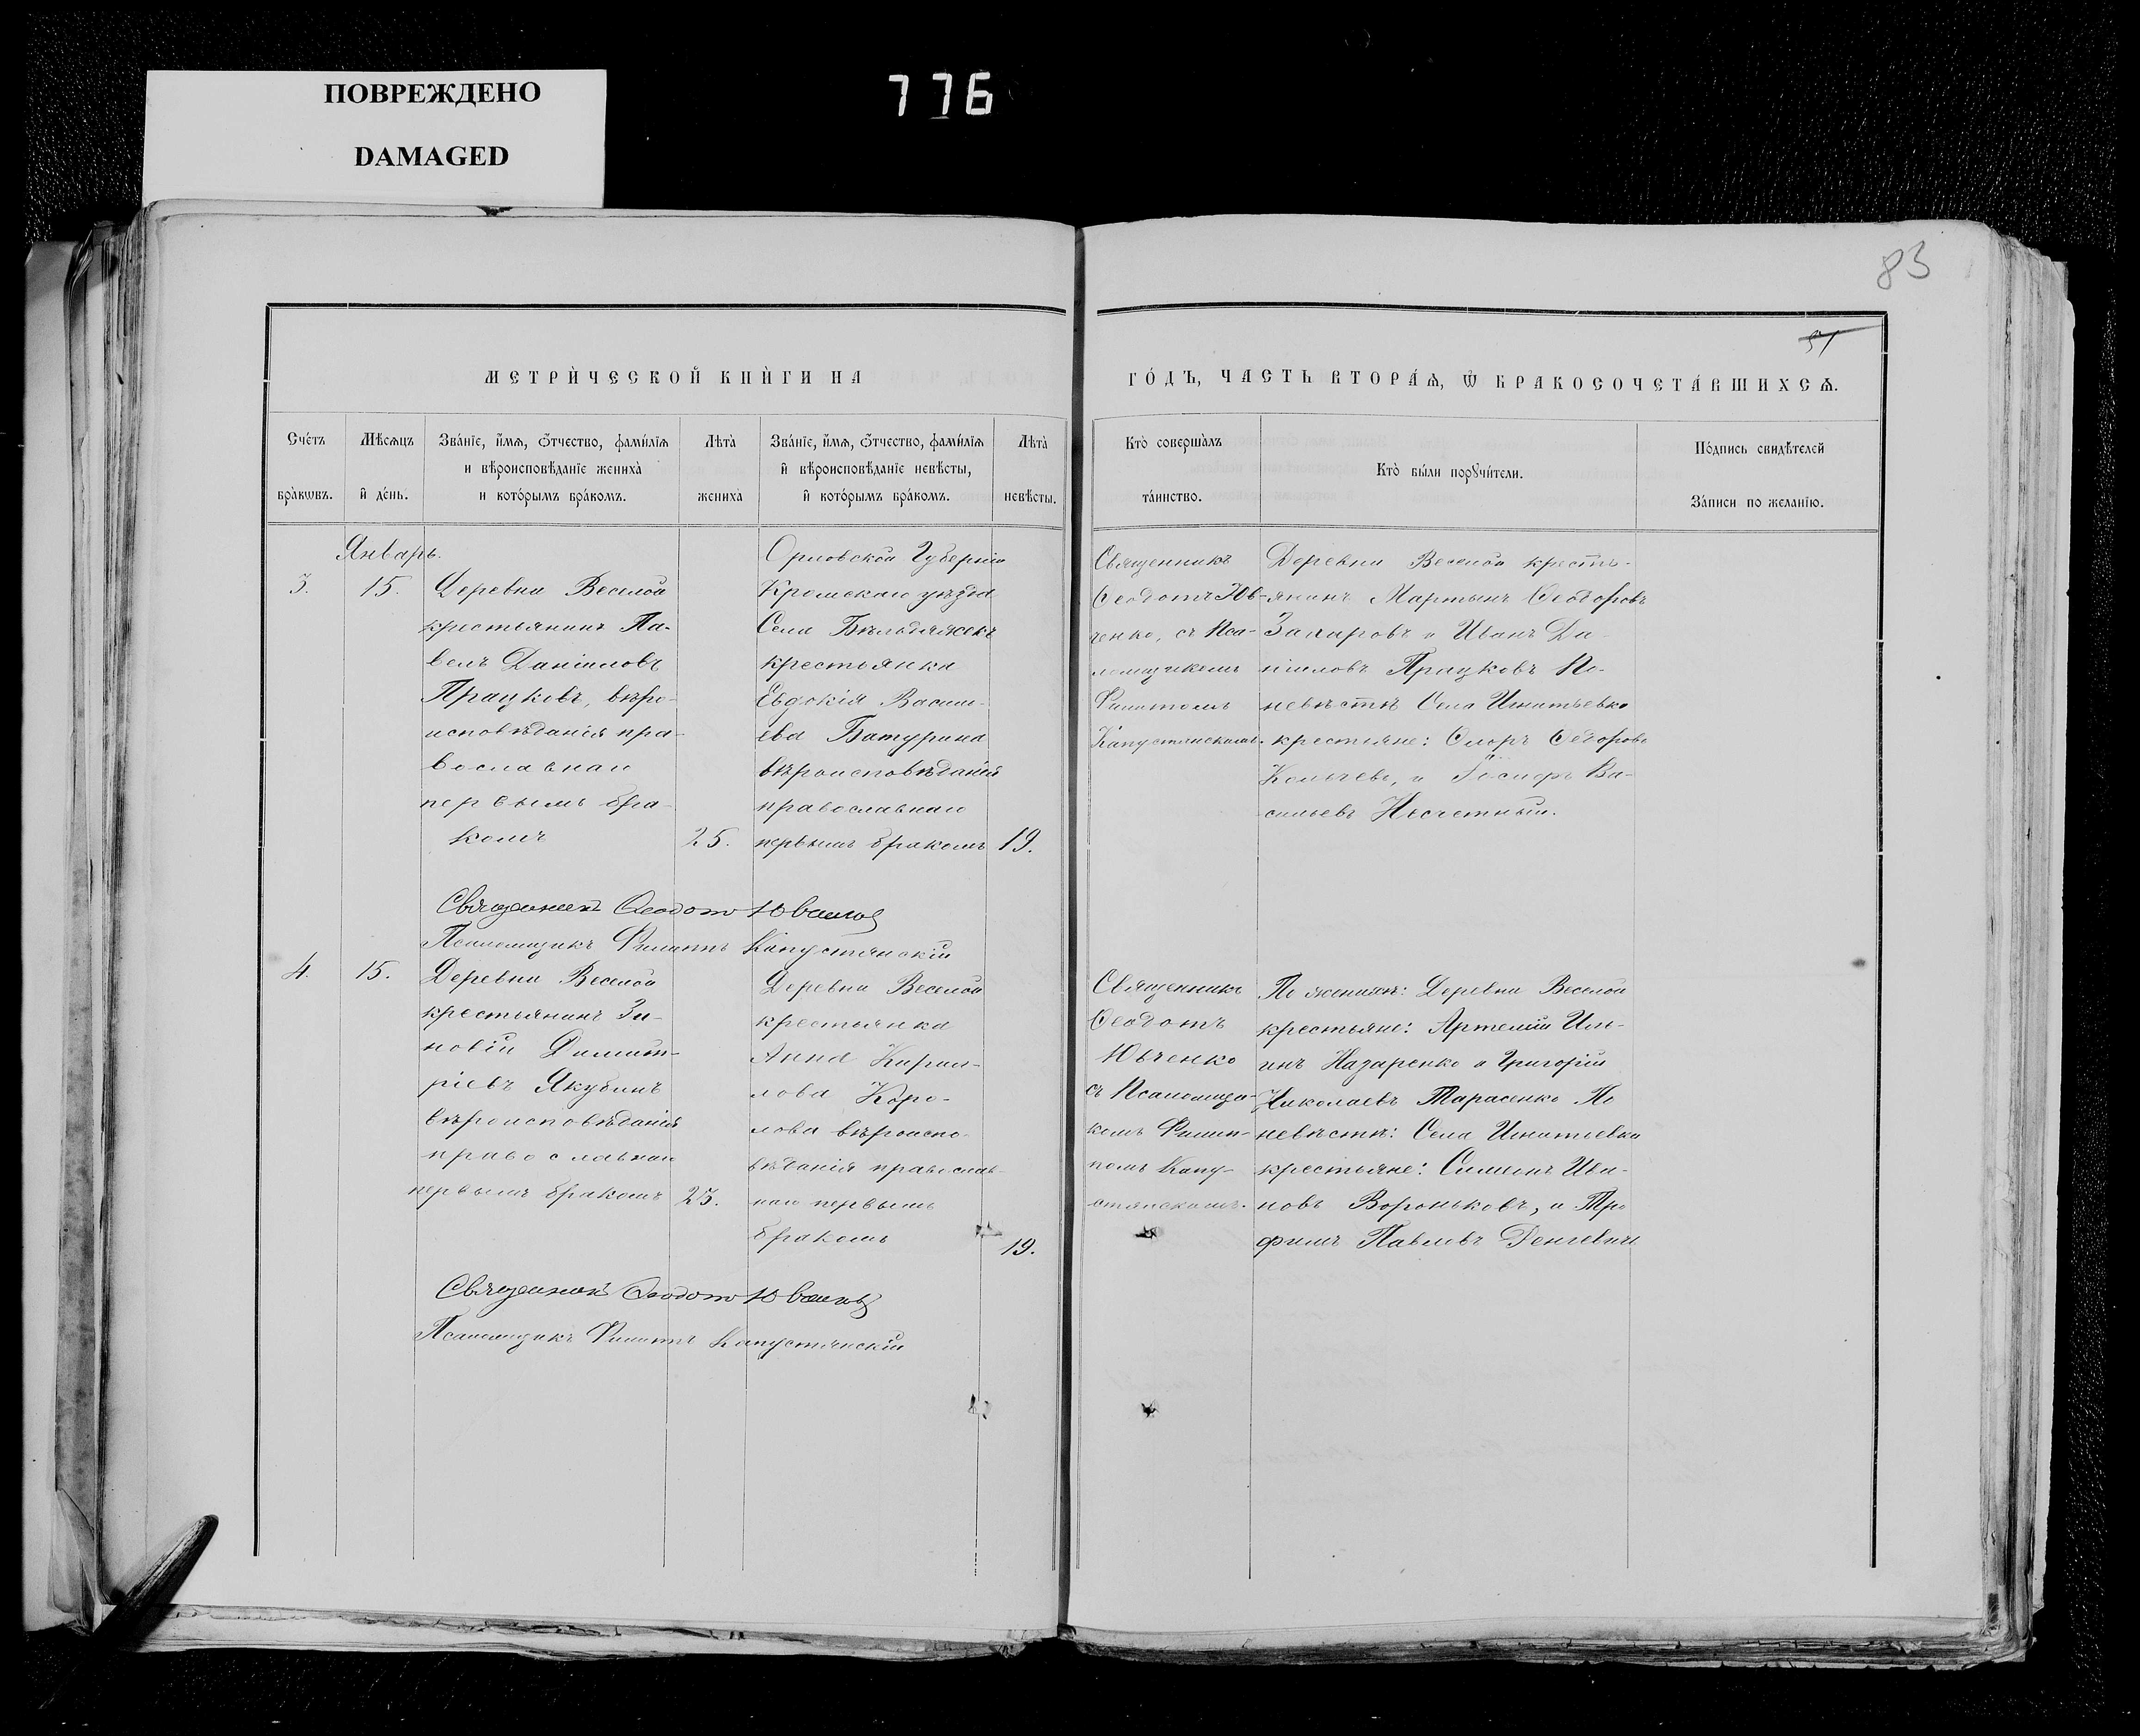 ПОВРЕЖДЕНО
DAMAGED
776
83
51
МЕТРИ́ЧЕСКОЙ КНИ́ГИ НА
ГО́ДЪ, ЧАСТЬ ВТОРА́Ѧ, Ѡ БРАКОСОЧЕТА́ВШИХСѦ.
Сче́тъ
бра́кѡвъ.
Мѣ́сѧцъ
и҆ де́нь.
Зва́нїе, и҆́мѧ, ѻ҆́тчество, фами́лїѧ
и вѣроисповѣ́данїе жениха̀
и кото́рымъ бра́комъ.
Лѣта̀
жениха̀
Зва́нїе, и҆́мѧ, ѻ҆́тчество, фами́лїѧ
и҆ вѣроисповѣ́данїе невѣ́сты,
и҆ кото́рымъ бра́комъ.
Лѣта̀
невѣ́сты.
Кто̀ соверша́лъ
та́инство.
Кто̀ бы́ли порꙋчи́тели.
По́дпись свидѣ́телей
За́писи по желанїю.
Январь.
3.
15.
Деревни Веселой
крестьянинъ Па-
велъ Даніиловъ
Працковъ, вѣро-
исповѣданія пра-
вославнаго
первымъ бра-
комъ
25.
Орловской Губерніи
Кромскаго уѣзда
Села Бѣльдяжекъ
крестьянка
Евдокія Василь-
ева Батурина
вѣроисповѣданія
православнаго
первымъ бракомъ
19.
Священникъ
Ѳеодотъ Юв-
ченко, съ Пса-
ломщикомъ
Филиппомъ
Капустянскимъ.
Деревни Веселой кресть-
янинъ Мартынъ Ѳеодоровъ
Захаровъ и Иванъ Да-
ніиловъ Працковъ По
невѣстѣ Села Игнатьевки
крестьяне: Ѳедоровъ
и Іосифъ Ва-
сильевъ Несчетный.
Священникъ Ѳеодотъ Ювченко
Псаломщикъ Филиппъ Капустянскій
4.
15.
Деревни Веселой
крестьянинъ Зи-
новій Димит-
ріевъ Якубинъ
вѣроисповѣданія
православнаго
первымъ бракомъ
25.
Деревни Веселой
крестьянка
Анна Кирил-
лова Коро-
лова вѣроиспо-
вѣданія православ-
наго первымъ
бракомъ
19.
Священникъ
Ѳеодотъ
Ювченко
съ Псаломщи-
комъ Филип-
помъ Капу-
стянскимъ.
По женихѣ: Деревни Веселой
крестьяне: Артемій Иль-
инъ Назаренко и Григорій
Николаевъ Тарасенко По
невѣстѣ: Села Игнатьевки
крестьяне: Симеонъ Ива-
новъ Вороньковъ, и Тро
фимъ Павловъ
Священникъ Ѳеодотъ Ювченко
Псаломщикъ Филиппъ Капустянскій